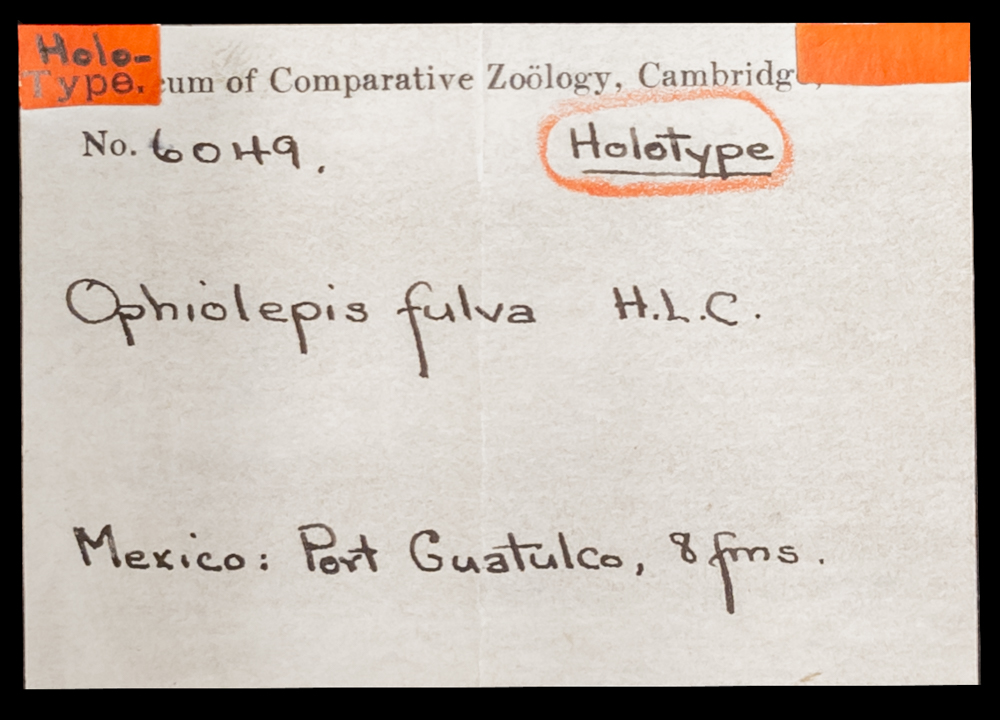 Holo-
Type.
um of Comparative Zoölogy, Cambridge,
No. 6049.
Holotype
Ophiolepis fulva H.L.C.
Mexico: Port Guatulco, 8 fms.